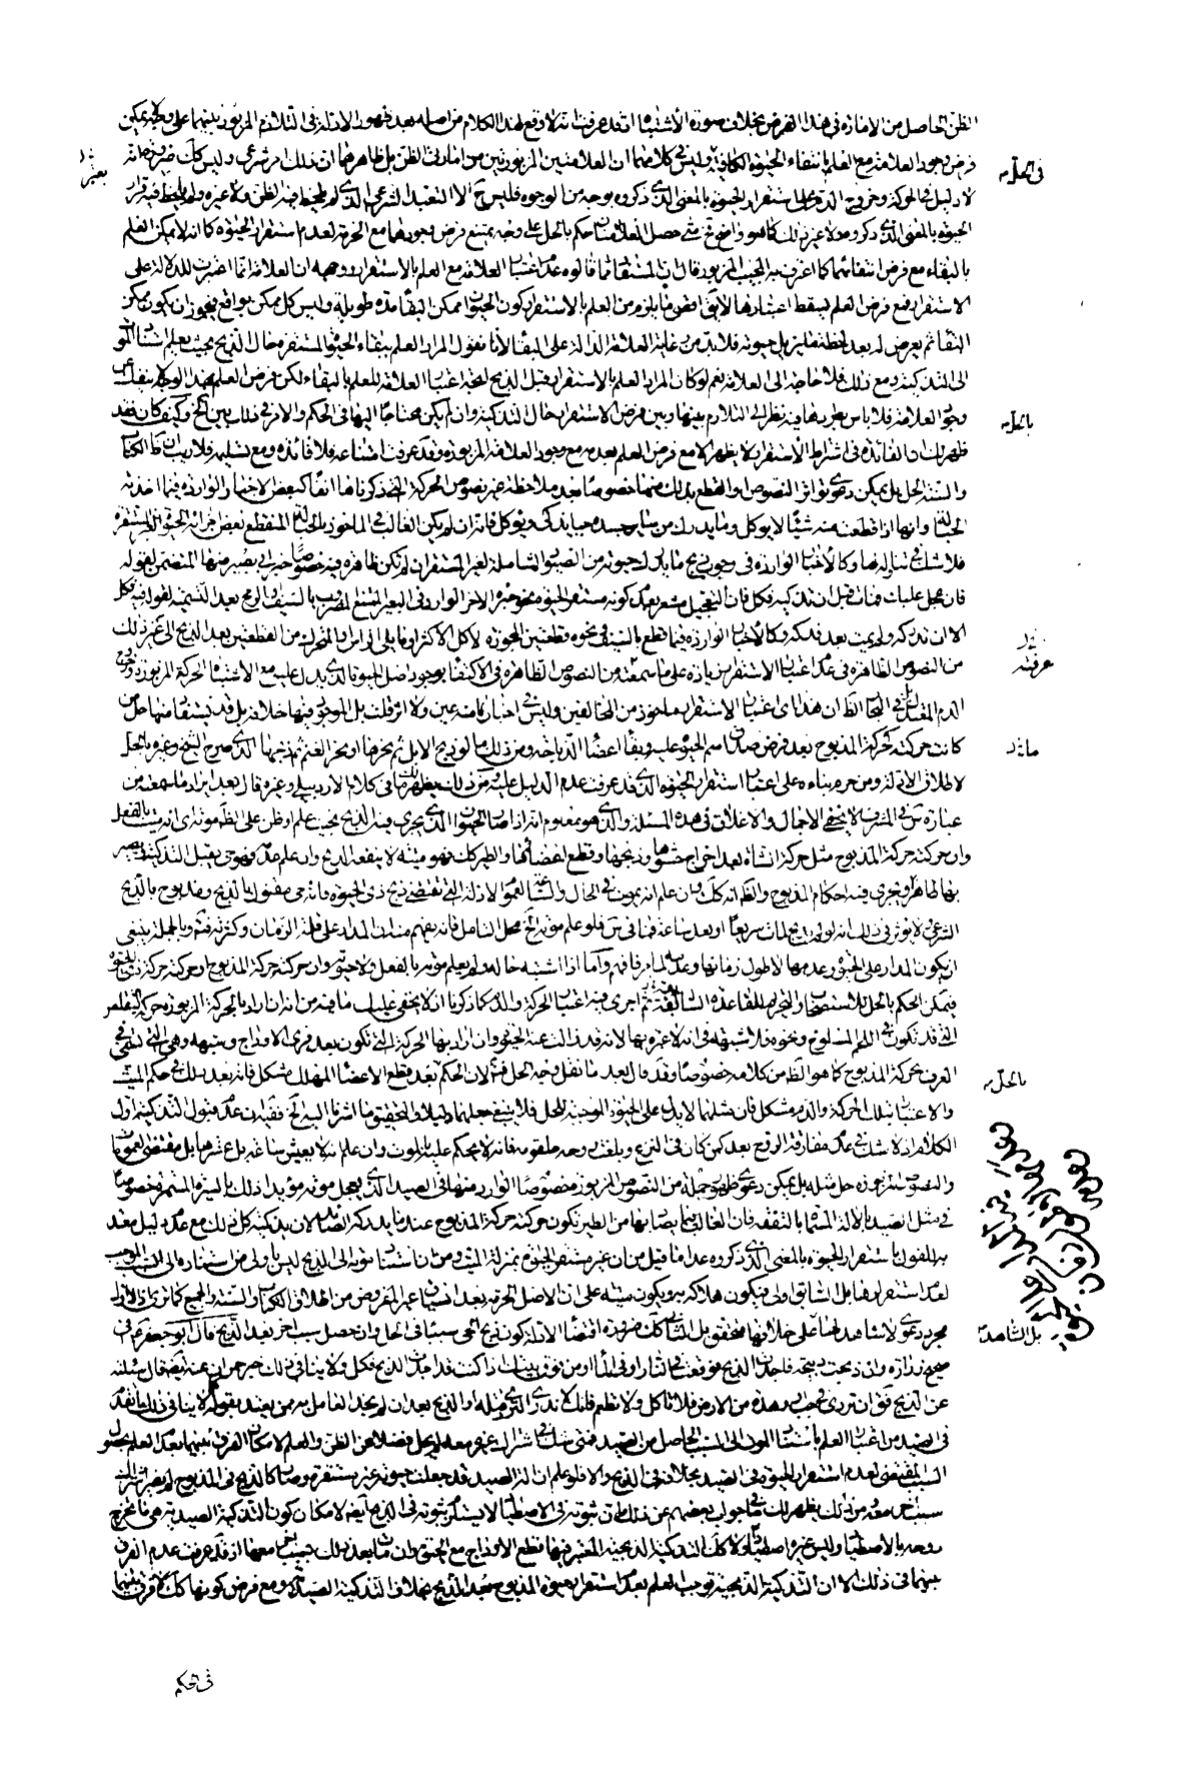 الظن الحاصل من الامارة في هذا الفرض بخلاف صورة الاشتباه اذ قد عرفت انه لا وقع لهذا الكلام من اصله بعد ظهور الادلة في التلازم المزبور بينهما على وجه لا يمكن
فرض وجود العلامة مع العلم بانتفاء الحيوة وليس في كلامهما ان العلامتين المزبورتين من امارات الظن بل ظاهرهما ان ذلك امر شرعي وليس كك ضرورة انه
لا دليل في الحركة وخروج الدم على استقرار الحيوة بالمعنى الذي ذكروه بوجه من الوجوه فليس ح الا التعبد الشرعي الذي لم يلحظ فيه الظن ولا غيره
الحيوة بالمعنى الذي ذكروه ولا غير ذلك كما هو واضح حصل العلامتان حكم بالحل على وجه يمتنع فرض وجودهما مع الحرمة لعدم استقرار الحيوة كما انه لا يمكن العلم
بالبقاء مع فرض انتفائهما كما اعترف به المجيب المزبور قال ان قالوه عدم اعتبار العلامة مع العلم بالاستقرار ووجهه ان العلامة انما اعتبرت للدلالة على
الاستقرار فمع فرض العلم يسقط اعتبارها من العلم بالاستقرار كون الحيوان ممكن البقاء مدة طويلة وليس كل ممكن بواقع فيجوز ان يكون ممكن
البقاء ثم يعرض له بعد لحظة ما يزيل حيوته فلا بد من العلامة الدالة على البقاء لانا نقول المراد العلم ببقاء الحيوة المستقرة حال الذبح بحيث يعلم استناد الموت
الى التذكية ومع ذلك فلا حاجة الى العلامة نعم لو كان المراد العلم بالاستقرار قبل الذبح اعتبار العلامة للعلم بالبقاء لكن فرض العلم بهذا الوجه
وجود العلامة فلا باس فيه نظرا الى التلازم بينها وبين فرض الاستقرار حال التذكية وان لم يكن محتاجا اليها في الحكم والامر في ذلك بين وكيف كان فقد
ظهر لك ان الفائدة في اشتراط الاستقرار لا يظهر الا مع فرض العلم بعدمه مع وجود العلامة المزبورة وقد عرفت امتناعه فلا فائدة ومع تسليمه فلا ريب ان
والسنة الحل بل يمكن دعوى تواتر النصوص او القطع بذلك منها خصوصا بعد ملاحظة غير نصوص الحركة التي ذكرناها انفا كبعض الاخبار الواردة فيما اخذته
الحبالة وانها اذا قطعت منه شيئا لا يوكل وما يدرك من ساير جسده حيا يذكى ويوكل فانه ان لم يكن الغالب في الماخوذ بالحبالة المنقطع بعض اجزائه
فلا شك في تناوله لها وكالاخبار الواردة في وجوب ذبح ما يدرك حيوته من الصيد الشاملة لغير المستقر ان لم تكن ظاهرة فيه خصوصا خبر ابي بصير منها المتضمن لقوله
فان عجل عليك فمات قبل ان تذكيه فكل فان التعجيل مشعر بعدم كونه مستقر الحيوة ونحو خبره الاخر الوارد في البعير الممتنع المضروب بالسيف او الرمح بعد التسمية لقوله فيه فكل
الا ان تدركه ولم يمت بعد فذكه وكالاخبار الواردة فيما قطع بالسيف ونحوه قطعتين المجوزة لاكل الاكثر او ما يلي الراس او المتحرك من القطعتين بعد الذبح الى غير ذلك
من النصوص الظاهرة في عدم اعتبار الاستقرار زيادة على ما سمعته من النصوص الظاهرة في الاكتفاء بوجود اصل الحيوة الذي يدل عليه مع الاشتباه الحركة المزبورة
الدم المعتدل ان هذا اي اعتبار الاستقرار ماخوذ من المخالفين وليس في اخبارنا منه عين ولا اثر قلت بل الموجود فيها خلافه بل قد يستفاد منها حل من
كانت حركته كحركة المذبوح بعد فرض صدق اسم الحيوة عليه وبقاء اعضاء الذباحة ومن ذلك ما لو ذبح الابل ثم نحرها او نحر الغنم ثم ذبحها الذي صرح الشيخ وغيره بالحل
لاطلاق الادلة ومن حرم بناه على اعتبار استقرار الحيوة الذي قد عرفت عدم الدليل عليه ومن ذلك يظهر لك ما في كلام الاردبيلي وغيره قال بعد ايراد ما سمعته من
عبارة ش في الشرح لا يخفى الاجمال والاغلاق في هذه المسئلة والذي هو معلوم انه اذا صار الحيوان الذي يجري فيه الذبح بحيث علم او ظن على الظ موته اي انه ميت بالفعل
وان حركته حركة المذبوح مثل حركة الشاة بعد اخراج حشوها وذبحها وقطع اعضائها والطير كك فهو ميتة لا ينفعه الذبح وان علم عدمه فهو حي يقبل التذكية ويصير
بها طاهرا ويجري فيه احكام المذبوح والظ انه كك وان علم انه يموت في الحال والساعة لعموم الادلة التي تقتضي ذبح ذي الحيوة فانه حي مقتول بالذبح ومذبوح بالذبح
الشرعي ولا يؤثر في ذلك انه لو لم يذبح لمات سريعا او بعد ساعة فما في س فلو علم موته الخ محل التامل فانه يفهم منه ان المدار على قلة الزمان وكثرته فتم وبالجملة ينبغي
ان يكون المدار على الحيوة وعدمها لا طول زمانها وعدمه فافهم واما اذا اشتبه حاله ولم يعلم موته بالفعل ولا حيوته وان حركته حركة المذبوح او حركة ذي الحيوة
فيمكن الحكم بالحل للاستصحاب والتحريم للقاعدة السالفة اجرى فيه اعتبار الحركة والدم كما ذكرنا اذ لا يخفى عليك ما فيه من انه ان اراد بالحركة المزبورة حركة التقلص
التي قد تكون في اللحم المسلوخ ونحوه فلا شبهة في انه لا عبرة بها لانه قد مات عنه الحيوة وان اراد بها الحركة التي تكون بعد فري الاوداج وشبهه وهي التي تسمى في
العرف بحركة المذبوح كما هو الظ من كلامه خصوصا وقد قال بعد ما نقل وجه الحل ان الحكم بعد قطع الاعضاء المهلك مشكل فانه بعد ذلك في حكم الميت
والاعتبار بتلك الحركة والدم مشكل فان مثلهما لا يدل على الحيوة الموجبة للحل فلا ينبغي جعلهما دليلا والتحقيق ما اشرنا اليه الخ ففيه ان عدم قبول التذكية اول
الكلام اذ لا شك في عدم مفارقة الروح بعد كمن كان في النزع وبلغت روحه حلقومه فانه لا يحكم عليه بالموت وان علم انه لا يعيش ساعة بل عشرها بل مقتضى العمومات
والنصوص المزبورة حل مثله بل يمكن دعوى ظهور جملة من النصوص المزبورة خصوصا الوارد منها في الصيد الذي يعجل موته مؤيدا ذلك بالسيرة المستمرة خصوصا
في مثل الصيد بالالة المسماة بالتفنقة فان الغالب فيما يصاب بها من الطير تكون حركته حركة المذبوح عندما يدركه الصائد لان يذكيه كل ذلك مع عدم دليل معتد
به للقول باستقرار الحيوة بالمعنى الذي ذكروه عدا ما قيل من ان غير مستقر الحيوة بمنزلة الميت ومن ان استناد موته الى الذبح ليس باولى من استناده الى السبب الموجب
لعدم استقرارها بل السابق اولى فيكون هلاكه به ويكون ميتة على ان الاصل الحرمة بعد انسياق غير الفرض من اطلاق الكتاب والسنة والجميع كما ترى اذ الاول
مجرد دعوى لا شاهد لها على خلافها متحقق بل الثاني كك ضرورة اقتضاء الادلة كون الذبح متى حصل سببا في الحل وان حصل سبب اخر بعد الذبح قال ابو جعفر ع في
صحيح زرارة وان ذبحت ذبيحة فاجدت الذبح فوقعت في النار او في الماء او من فوق بيتك اذا كنت قد اجدت الذبح فكل ولا ينافي ذلك خبر حمران عنه ايضا قال سئلته
عن الذبح فقال ان تردى في جب او وهدة من الارض فلا تاكله ولا تطعم فانك لا تدري التردي قتله او الذبح بعد ان لم يجد العامل به ممن يعتد بقوله كما لا ينافي ذلك ما تقدم
في الصيد من اعتبار العلم باستناد الموت الى السبب الحاصل من الصيد فمتى شك في اشتراك غيره معه لم يحل فضلا عن الظن والعلم لامكان الفرق بينهما بعدم العلم بحصول
السبب المقتضي لعدم استقرار الحيوة في الصيد بخلافه في الذبح والا فلو علم ان الة الصيد قد جعلت حيوته غير مستقرة وصار كالذبح في المذبوح لم يضر اشتراك
سبب اخر معه ومن ذلك يظهر لك ما في جواب بعضهم عن ذلك بان ثبوته في الاصطياد لا يستلزم ثبوته في الذبح ايضا لامكان كون التذكية الصيدية هي ما تخرج
روحه بالاصطياد وليس غيره اصطيادا ولا كك التذكية الذبحية المعتبر فيها قطع الاوداج مع الحيوة وان مات بعد ذلك بسبب اخر معها اذ قد عرفت عدم الفرق
بينهما في ذلك الا ان التذكية الذبحية توجب العلم بعدم استقرار حيوة المذبوح بعد الذبح بخلاف التذكية الصيدية ومع فرض كونها كك لا فرق بينهما
في الحكم